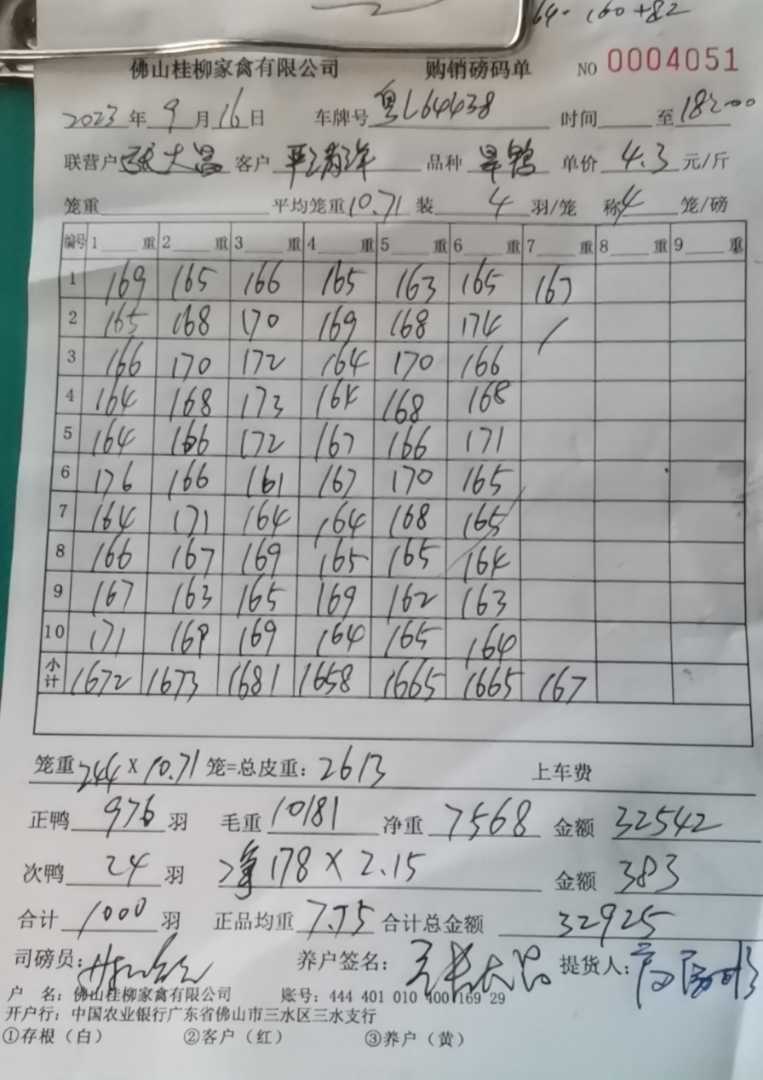 64- 160+82
佛山桂柳家禽有限公司 购销磅码单 NO 0004051
2023年9月16日 车牌号粤L64438 时间 至
联营户 大昌 客户 品种 旱鸭 单价 4.3 元/斤
笼重 平均笼重10.71 装 4 羽/笼 称4 笼/磅
编号 1 重 2 重 3 重 4 重 5 重 6 重 7 重 8 重 9 重
1 169 165 166 165 163 165 167
2 165 168 170 169 168 174 /
3 166 170 172 164 170 166
4 164 168 173 164 168 168
5 164 166 172 167 166 171
6 176 166 161 167 170 165
7 164 171 164 164 168 165
8 166 167 169 165 165 164
9 167 163 165 169 162 163
10 171 169 169 164 165 164
小计 1672 1673 1681 1658 1665 1665 167
笼重 244 X 10.71 笼=总皮重：2613 上车费
正鸭 976 羽 毛重 10181 净重 7568 金额 32542
次鸭 24 羽 净178 X 2.15 金额 383
合计 1000 羽 正品均重 7.75 合计总金额 32925
司磅员： 养户签名： 大昌 提货人：
户 名：佛山桂柳家禽有限公司 账号：444 401 010 400 169 29
开户行：中国农业银行广东省佛山市三水区三水支行
①存根（白） ②客户（红） ③养户（黄）